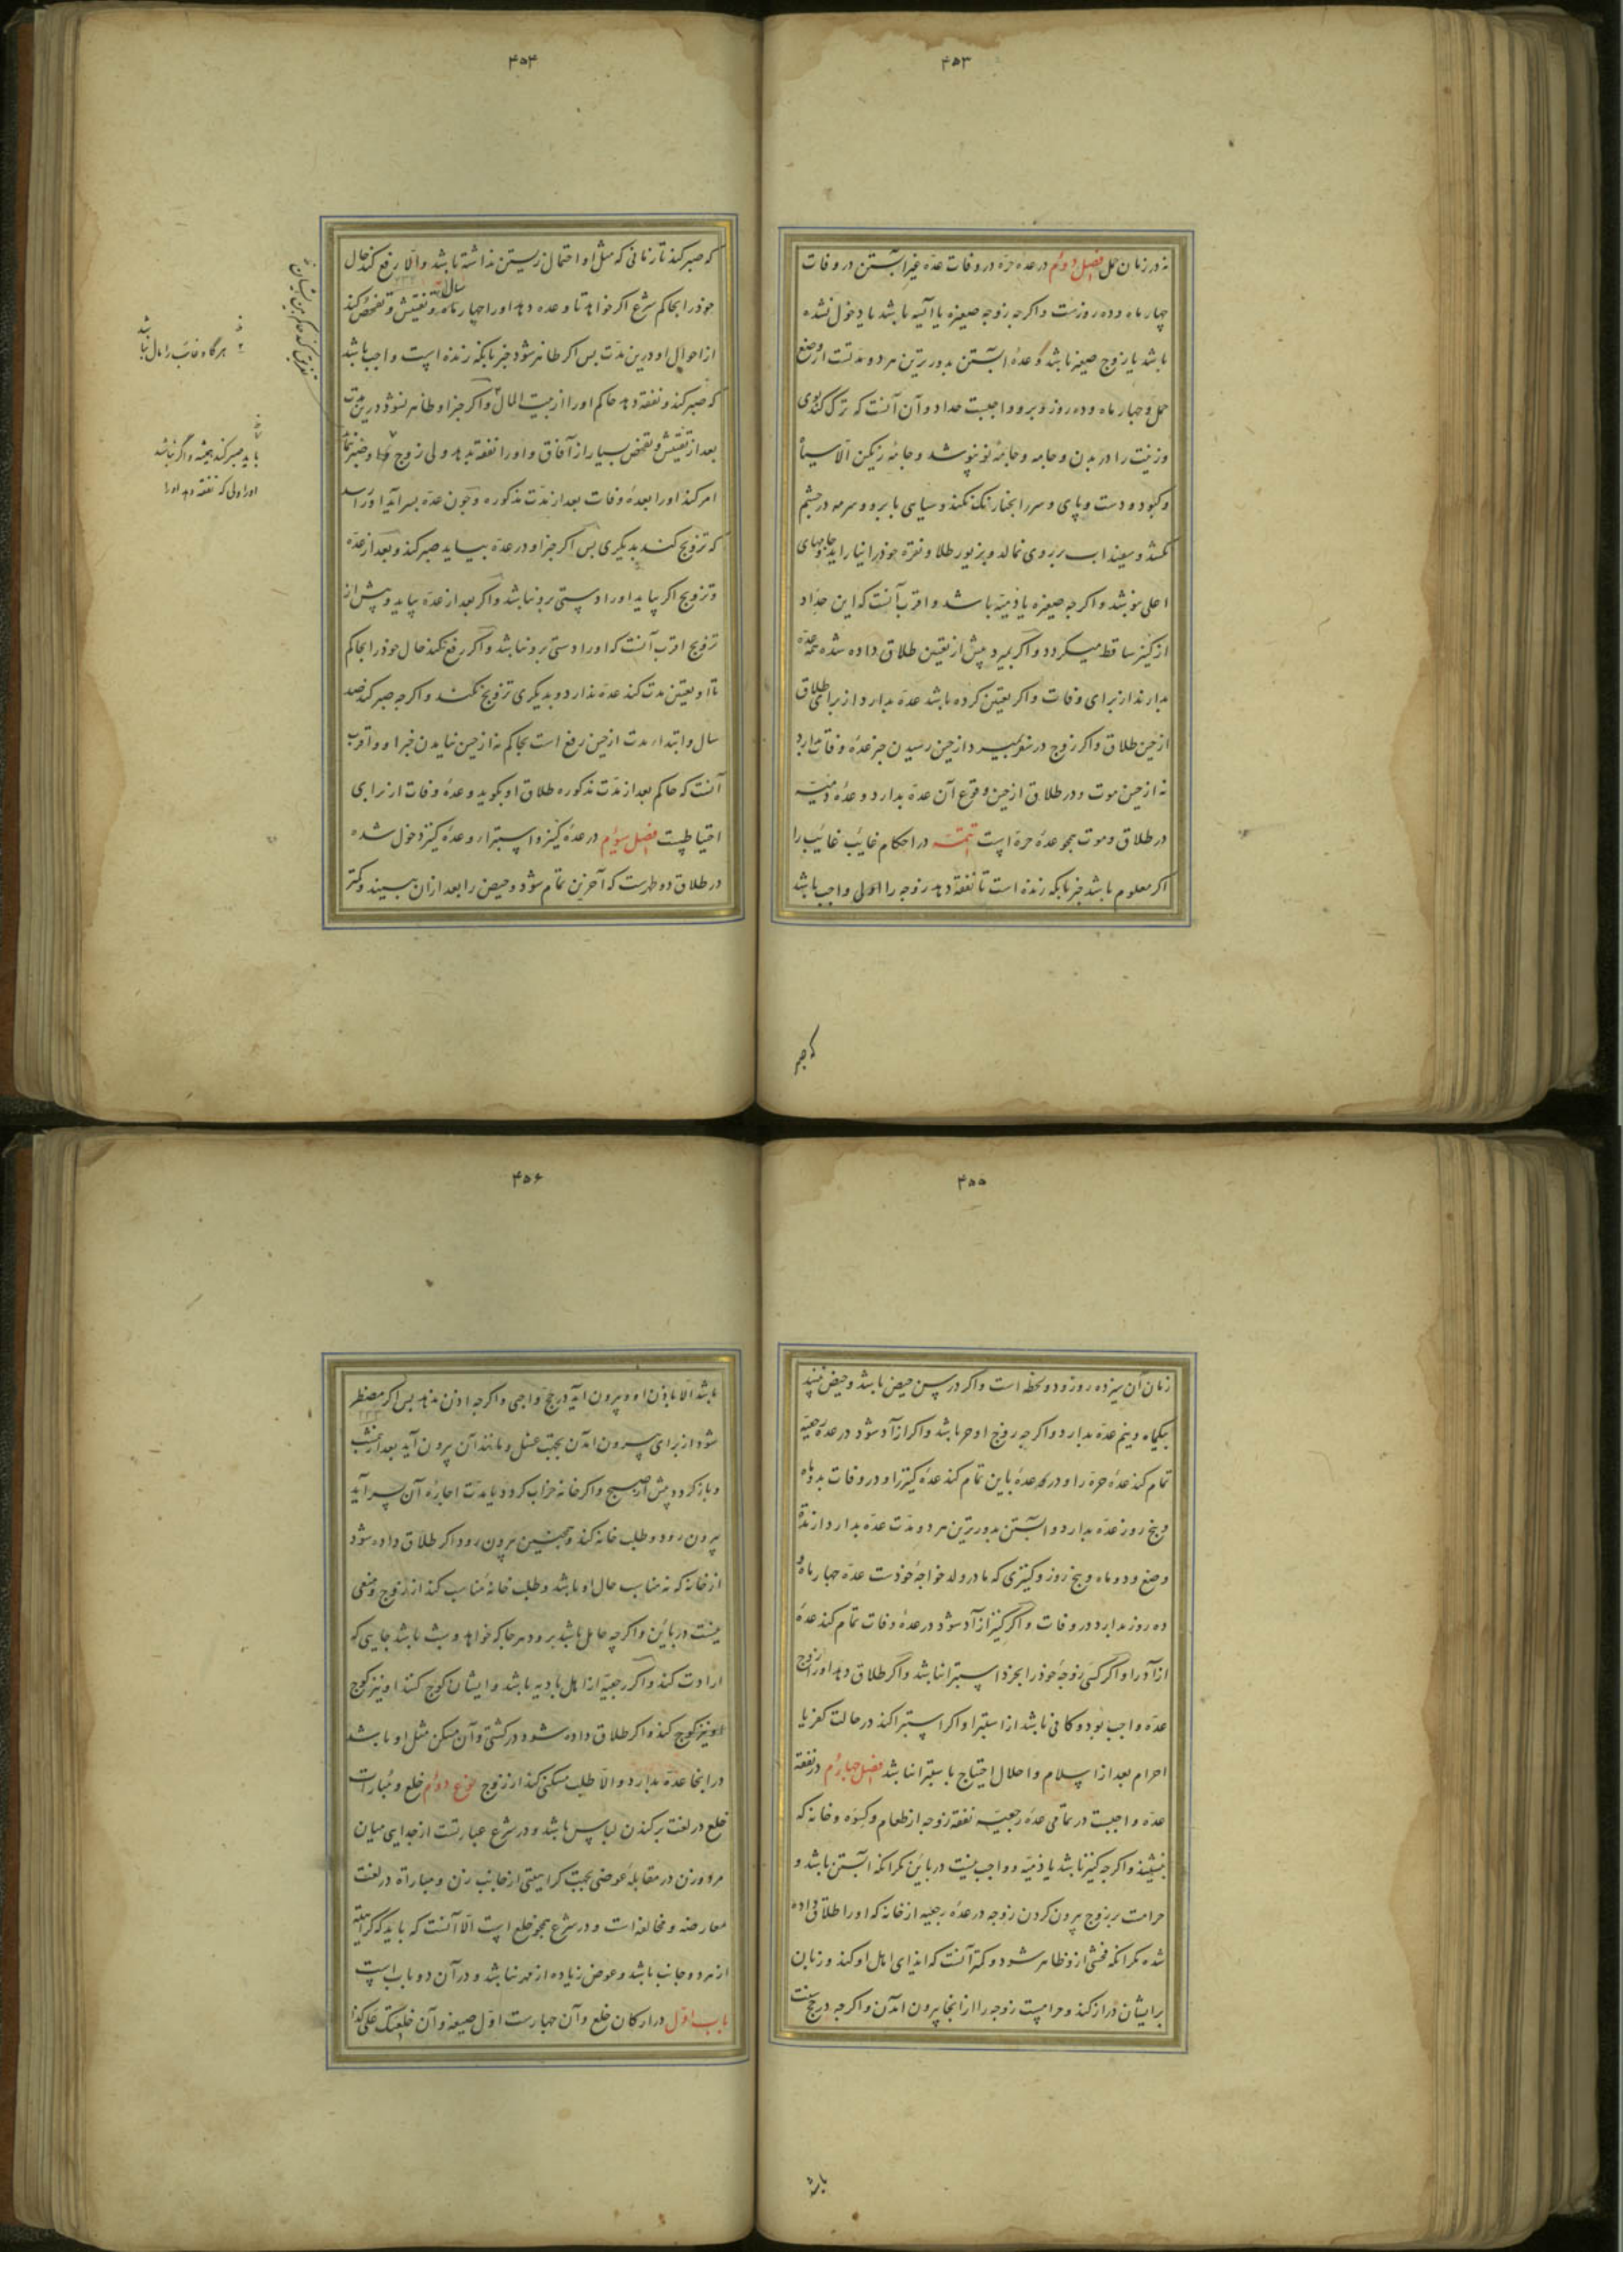 ۴۵۳
نه در زمان حمل فصل دوم در عده حره در وفات عده غیر آبستن در وفات
چهار ماه و ده روزست و اگرچه زوجه صغیره یا آیسه باشد یا دخول نشده
باشد یا زوج صغیر باشد و عدهٔ آبستن بدورترین هر دو مدتست از وضع
حمل و چهار ماه و ده روز و برو واجبست حداد و آن آنست که ترک کند بوی
و زینت را در بدن و جامه و جامهٔ نو نپوشد و جامهٔ رنگین الا سیاه
و کبود و دست و پای و سر را بحنا رنک نکند و سیاهی بابرو و سرمه در چشم
نکشد و سفیداب بر روی نمالد و بزیور طلا و نقره خود را نیاراید و جامهای
اعلی نپوشد و اگرچه صغیره یا ذمیه باشد و اقرب آنست که این حداد
از کنیز ساقط میگردد و اگر بمیرد پیش از تعیین طلاق داده شده همه عده
بدارند از برای وفات و اگر تعیین کرده باشد عده بدارد از برای طلاق
از حین طلاق و اگر زوج در سفر بمیرد از حین رسیدن خبر عدهٔ وفات دارد
نه از حین موت و در طلاق از حین وقوع آن عده بدارد و عدهٔ ذمیه
در طلاق و موت همچو عدهٔ حره است تتمه در احکام غایب غایب را
اگر معلوم باشد خبر بانکه زنده است تا نفقه دهد زوجه را ولی واجب باشد
که صبر
۴۵۴
که صبر کند تا زمانی که مثل او احتمال زیستن نداشته باشد والا رفع کند حال
خود را بحاکم شرع اگر خواهد تا وعده دهد او را چهار سال و تفتیش و تفحص کند
از احوال او درین مدت پس اگر ظاهر شود خبر بانکه زنده است واجب باشد
که صبر کند و نفقه دهد حاکم او را از بیت المال و اگر خبر او ظاهر نشود درین مدت
بعد از تفتیش و تفحص بسیار از آفاق و او را نفقه ندهد ولی زوج و صبر نماید
امر کند او را بعدهٔ وفات بعد از مدت مذکوره و چون عده بسر آید او را رسد
که تزویج کند بدیگری پس اگر خبر او در عده بیاید صبر کند و بعد از عده
و تزویج اگر بیاید او را دستی برو نباشد و اگر بعد از عده بیاید و پیش از
تزویج اقرب آنست که او را دستی برو نباشد و اگر رفع نکند حال خود را بحاکم
تا او تعیین مدت کند عده ندارد و بدیگری تزویج نکند و اگرچه صبر کند صد
سال و ابتداء مدت از حین رفع است بحاکم نه از حین نیامدن خبر او و اقرب
آنست که حاکم بعد از مدت مذکوره طلاق او بگوید و عدهٔ وفات از برای
احتیاطست فصل سوم در عدهٔ کنیز و استبراء و عدهٔ کنیز دخول شده
در طلاق دو طهرست که آخرین تمام شود و حیض را بعد از آن ببیند و کمتر
هرگاه غائب را مال نباشد
باید صبر کند همیشه و اگر نباشد
او را ولی که نفقه دهد او را
۴۵۵
زمان آن سیزده روز و دو لحظه است و اگر در سن حیض باشد و حیض نبیند
یکماه و نیم عده بدارد و اگرچه زوج او حر باشد و اگر آزاد شود در عدهٔ رجعیه
تمام کند عدهٔ حره را و در عدهٔ باین تمام کند عدهٔ کنیز را و در وفات بدو ماه
و پنج روز عده بدارد و آبستن بدورترین هر دو مدت عده بدارد از مدت
وضع و دو ماه و پنج روز و کنیزی که مادر ولد خواجهٔ خودست عده چهار ماه و
ده روز بدارد در وفات و اگر کنیز آزاد شود در عدهٔ وفات تمام کند عدهٔ
آزاد را و اگر کسی زوجهٔ خود را بخرد استبرا نباشد و اگر طلاق دهد او را زوج
عده واجب بود و کافی باشد از استبرا و اگر استبرا کند در حالت کفر یا
احرام بعد از اسلام و احلال احتیاج باستبرا نباشد فصل چهارم در نفقه
عده واجبست در تمامی عدهٔ رجعیه نفقه زوجه از طعام و کسوه و خانه که
بنشیند و اگرچه کنیز باشد یا ذمیه و واجب نیست در باین مگر انکه آبستن باشد و
حرامست بر زوج بیرون کردن زوجه در عدهٔ رجعیه از خانه که او را طلاق داده
شده مگر انکه فحشی ازو ظاهر شود و کمتر آنست که ایذای اهل او کند و زبان
بر ایشان دراز کند و حرامست زوجه را از انجا بیرون آمدن و اگرچه در حج سنت
باشد
۴۵۶
باشد الا باذن او و بیرون آید در حج واجبی و اگرچه اذن ندهد پس اگر مضطر
شود از برای بیرون آمدن بجهت غسل و مانند آن بیرون آید بعد از نصف شب
و باز گردد پیش از صبح و اگر خانه خراب گردد یا مدت اجارهٔ آن بسر آید
بیرون رود و طلب خانه کند و همچنین بیرون رود اگر طلاق داده شود
از خانه که نه مناسب حال او باشد و طلب خانهٔ مناسب کند از زوج و منعی
نیست در باین و اگرچه حامل باشد برود هرجا که خواهد و شب باشد جایی که
ارادت کند و اگر رجعیه از اهل بادیه باشد و ایشان کوچ کنند او نیز کوچ
او نیز کوچ کند و اگر طلاق داده شود در کشتی و آن مسکن مثل او باشد
در انجا عده بدارد والا طلب مسکنی کند از زوج نوع دوم خلع و مبارات
خلع در لغت برکندن لباس باشد و در شرع عبارتست از جدایی میان
مرد و زن در مقابلهٔ عوضی بجهت کراهیتی از جانب زن و مباراة در لغت
معارضه و مخالفه است و در شرع همچو خلع است الا آنست که باید که کراهیته
از هر دو جانب باشد و عوض زیاده از مهر نباشد و در آن دو باب است
باب اول در ارکان خلع و آن چهارست اول صیغه و آن خلعتک علی کذا